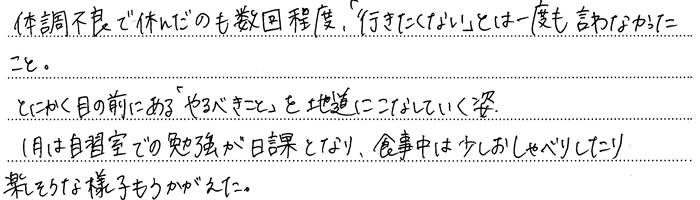 体調不良で休んだのも数回程度、「行きたくない」とは一度も言わなかった
こと。
とにかく目の前にある「やるべきこと」を地道にこなしていく姿.
1月は自習室での勉強が日課となり、食事中は少しおしゃべりしたり
楽しそうな様子もうかがえた。